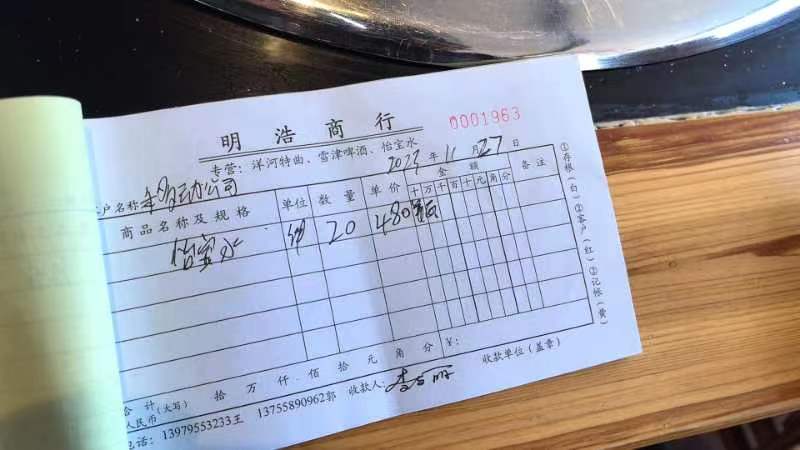 明浩商行
0001963
专营：洋河特曲、雪津啤酒、怡宝水
2023年11月27日
户名称 移动公司
商品名称及规格 单位 数量 单价 金额 十万千百十元角分 备注
怡宝水 20 480
①存根（白）②客户（红）③记帐（黄）
合计人民币（大写） 拾 万 仟 佰 拾 元 角 分 ￥：
收款人： 收款单位（盖章）
电话：13979553233王 13755890962郭